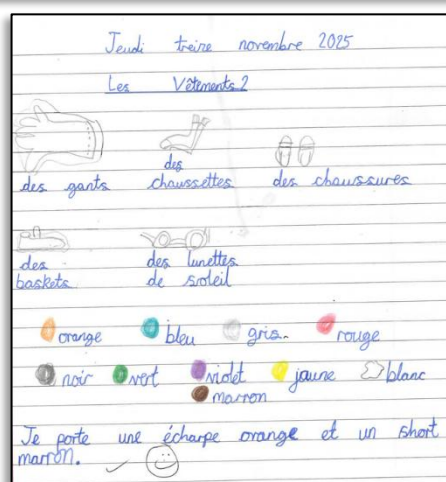 Jeudi treize novembre 2025
Les Vêtements 2
des gants
des chaussettes
des chaussures
des baskets
des lunettes de soleil
orange bleu gris. rouge
noir vert violet jaune blanc
marron
Je porte une écharpe orange et un short
marron.